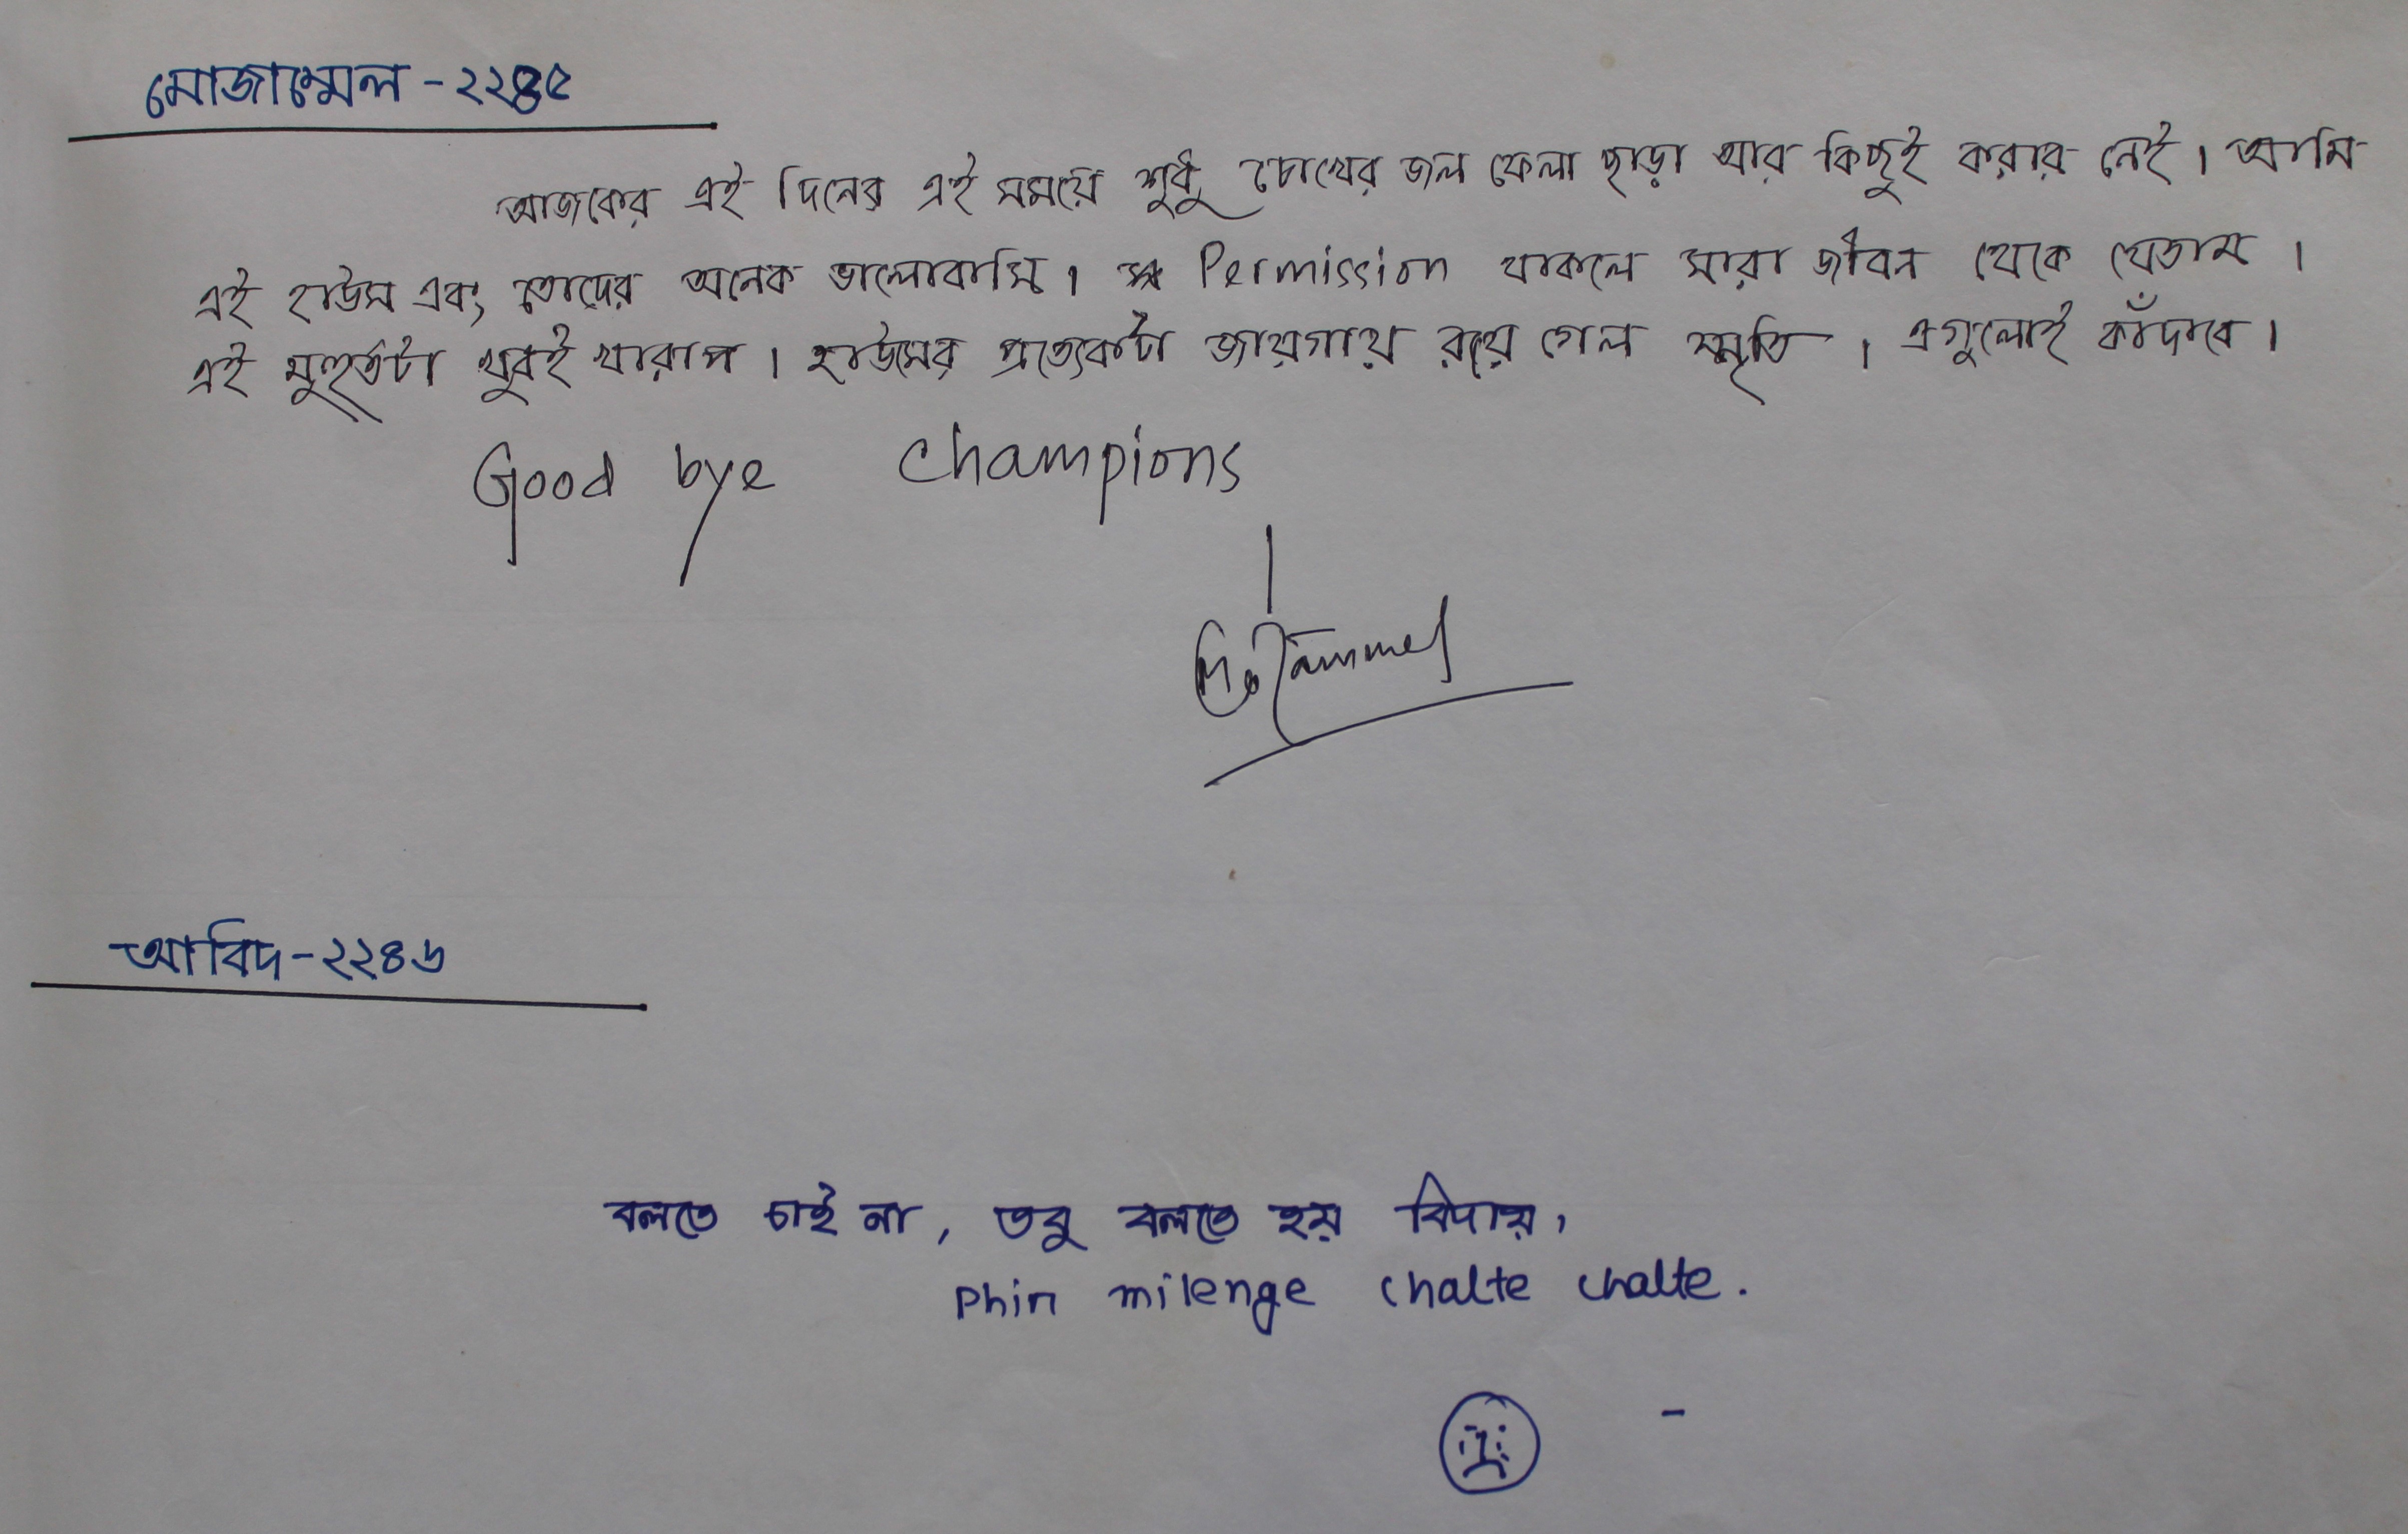 মোজাম্মেল - ২২৪৫
আজকের এই দিনের এই সময়ে শুধু চোখের জল ফেলা ছাড়া আর কিছুই করার নেই। আমি
এই হাউস এবং তোদের অনেক ভালোবাসি। Permission থাকলে সারা জীবন থেকে যেতাম।
এই মুহুর্তটা খুবই খারাপ। হাউসের প্রত্যেকটা জায়গায় রয়ে গেল স্মৃতি। এগুলোই কাঁদাবে।
Good bye champions
Mozammel
আবিদ - ২২৪৬
বলতে চাই না, তবু বলতে হয় বিদায়,
Phir milenge chalte chalte.